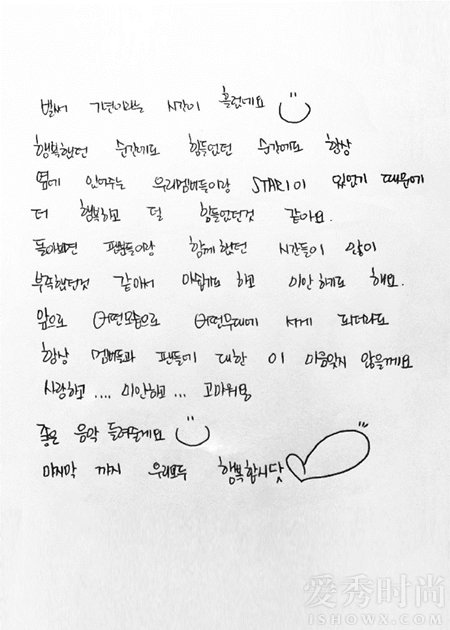 벌써 7년이라는 시간이 흘렀네요
행복했던 순간에도 힘들었던 순간에도 항상
옆에 있어주는 우리멤버들이랑 STAR1이 있었기 때문에
더 행복하고 덜 힘들었던것 같아요.
돌아보면 팬분들이랑 함께했던 시간들이 많이
부족했던것 같아서 아쉽기도 하고 미안하기도 해요.
앞으로 어떤모습으로 어떤무대에 서게 되더라도
항상 멤버들과 팬들에 대한 이 마음잊지 않을께요
사랑하고 .... 미안하고 ... 고마워요
좋은 음악 들려줄게요
마지막 까지 우리모두 행복합시닷
爱秀时尚
ISHOWX.COM